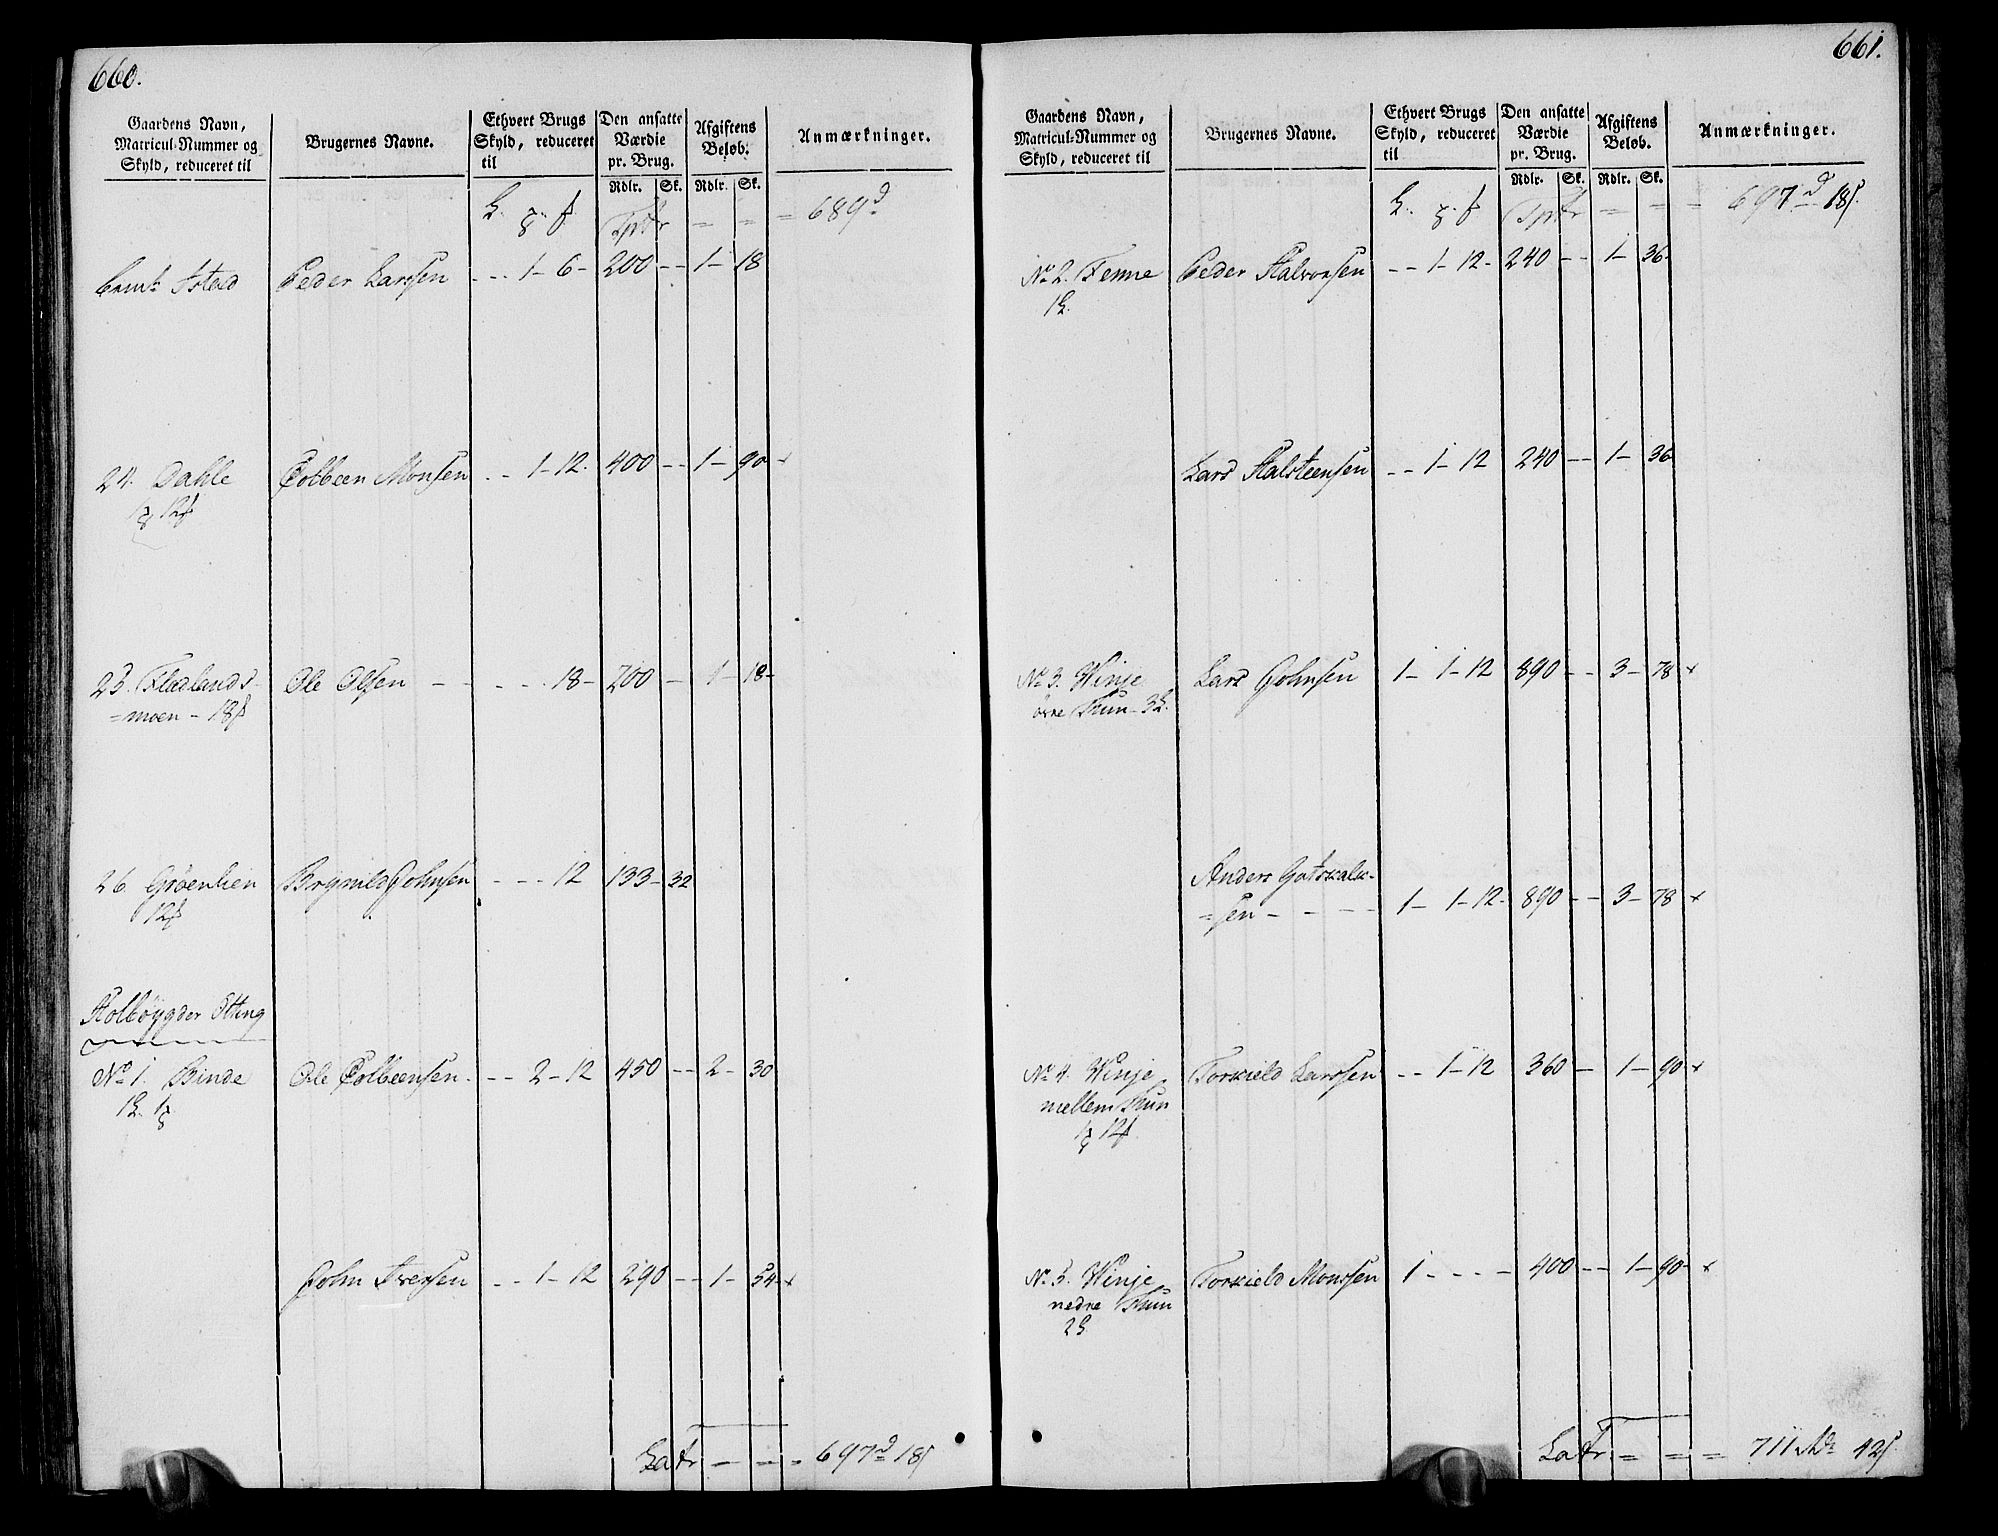 660.
Gaardens Navn, Matricul-Nummer og Skyld, reduceret til
Brugernes Navne.
Ethvert Brugs Skyld, reduceret til
Den ansatte Værdie pr. Brug.
Afgiftens Beløb.
Anmærkninger.
Rdlr. Sk. Rdlr. Sk.
Tptr = = = 689 d
Istad Peder Larssen - - - 1 - 6 - 200 - - 1 - 18
24. Dahle Colbeen Monsen - - 1 - 12. 400 - - 1 - 90 - +
12
25. Flatlands- Ole Olsen - - - - 18 - 200 - 1 - 18 -
= moen - 18
26 Grøenlien Brynild Johnsen - - - 12 133 - 32
12
Holbøygder Otting
No 1. Binde Ole Colbeensen - - - 2 - 12 450 - - 2 - 30
John Iversen - - 1 - 12 290 - - 1 - 54 - +
Latr - - = 697 d 18
661.
Gaardens Navn, Matricul-Nummer og Skyld, reduceret til
Brugernes Navne.
Ethvert Brugs Skyld, reduceret til
Den ansatte Værdie pr. Brug.
Afgiftens Beløb.
Anmærkninger.
Rdlr. Sk. Rdlr. Sk.
Tptr = = = 697 d 18
No 2. Fenne Peder Halvorsen - - 1 - 12 - 240 - - 1 - 36 -
Lars Halsteensen - - 1 - 12 240 - - 1 - 36
No 3. Winje Lars Johnsen 1 - 1 - 12 890 - - 3 - 78 +
øvre Thun
Anders Gotskalk-
= sen - - - - 1 - 1 - 12 - 890 - - 3 - 78 +
No 4. Winje Torkield Larssen - - 1 - 12 360 - 1 - 90 - +
mellem Thun
12
No 5. Winje Torkield Monssen 1 - - - - 400 - - 1 - 90 - +
nedre Thun
Latr = = = 711 42